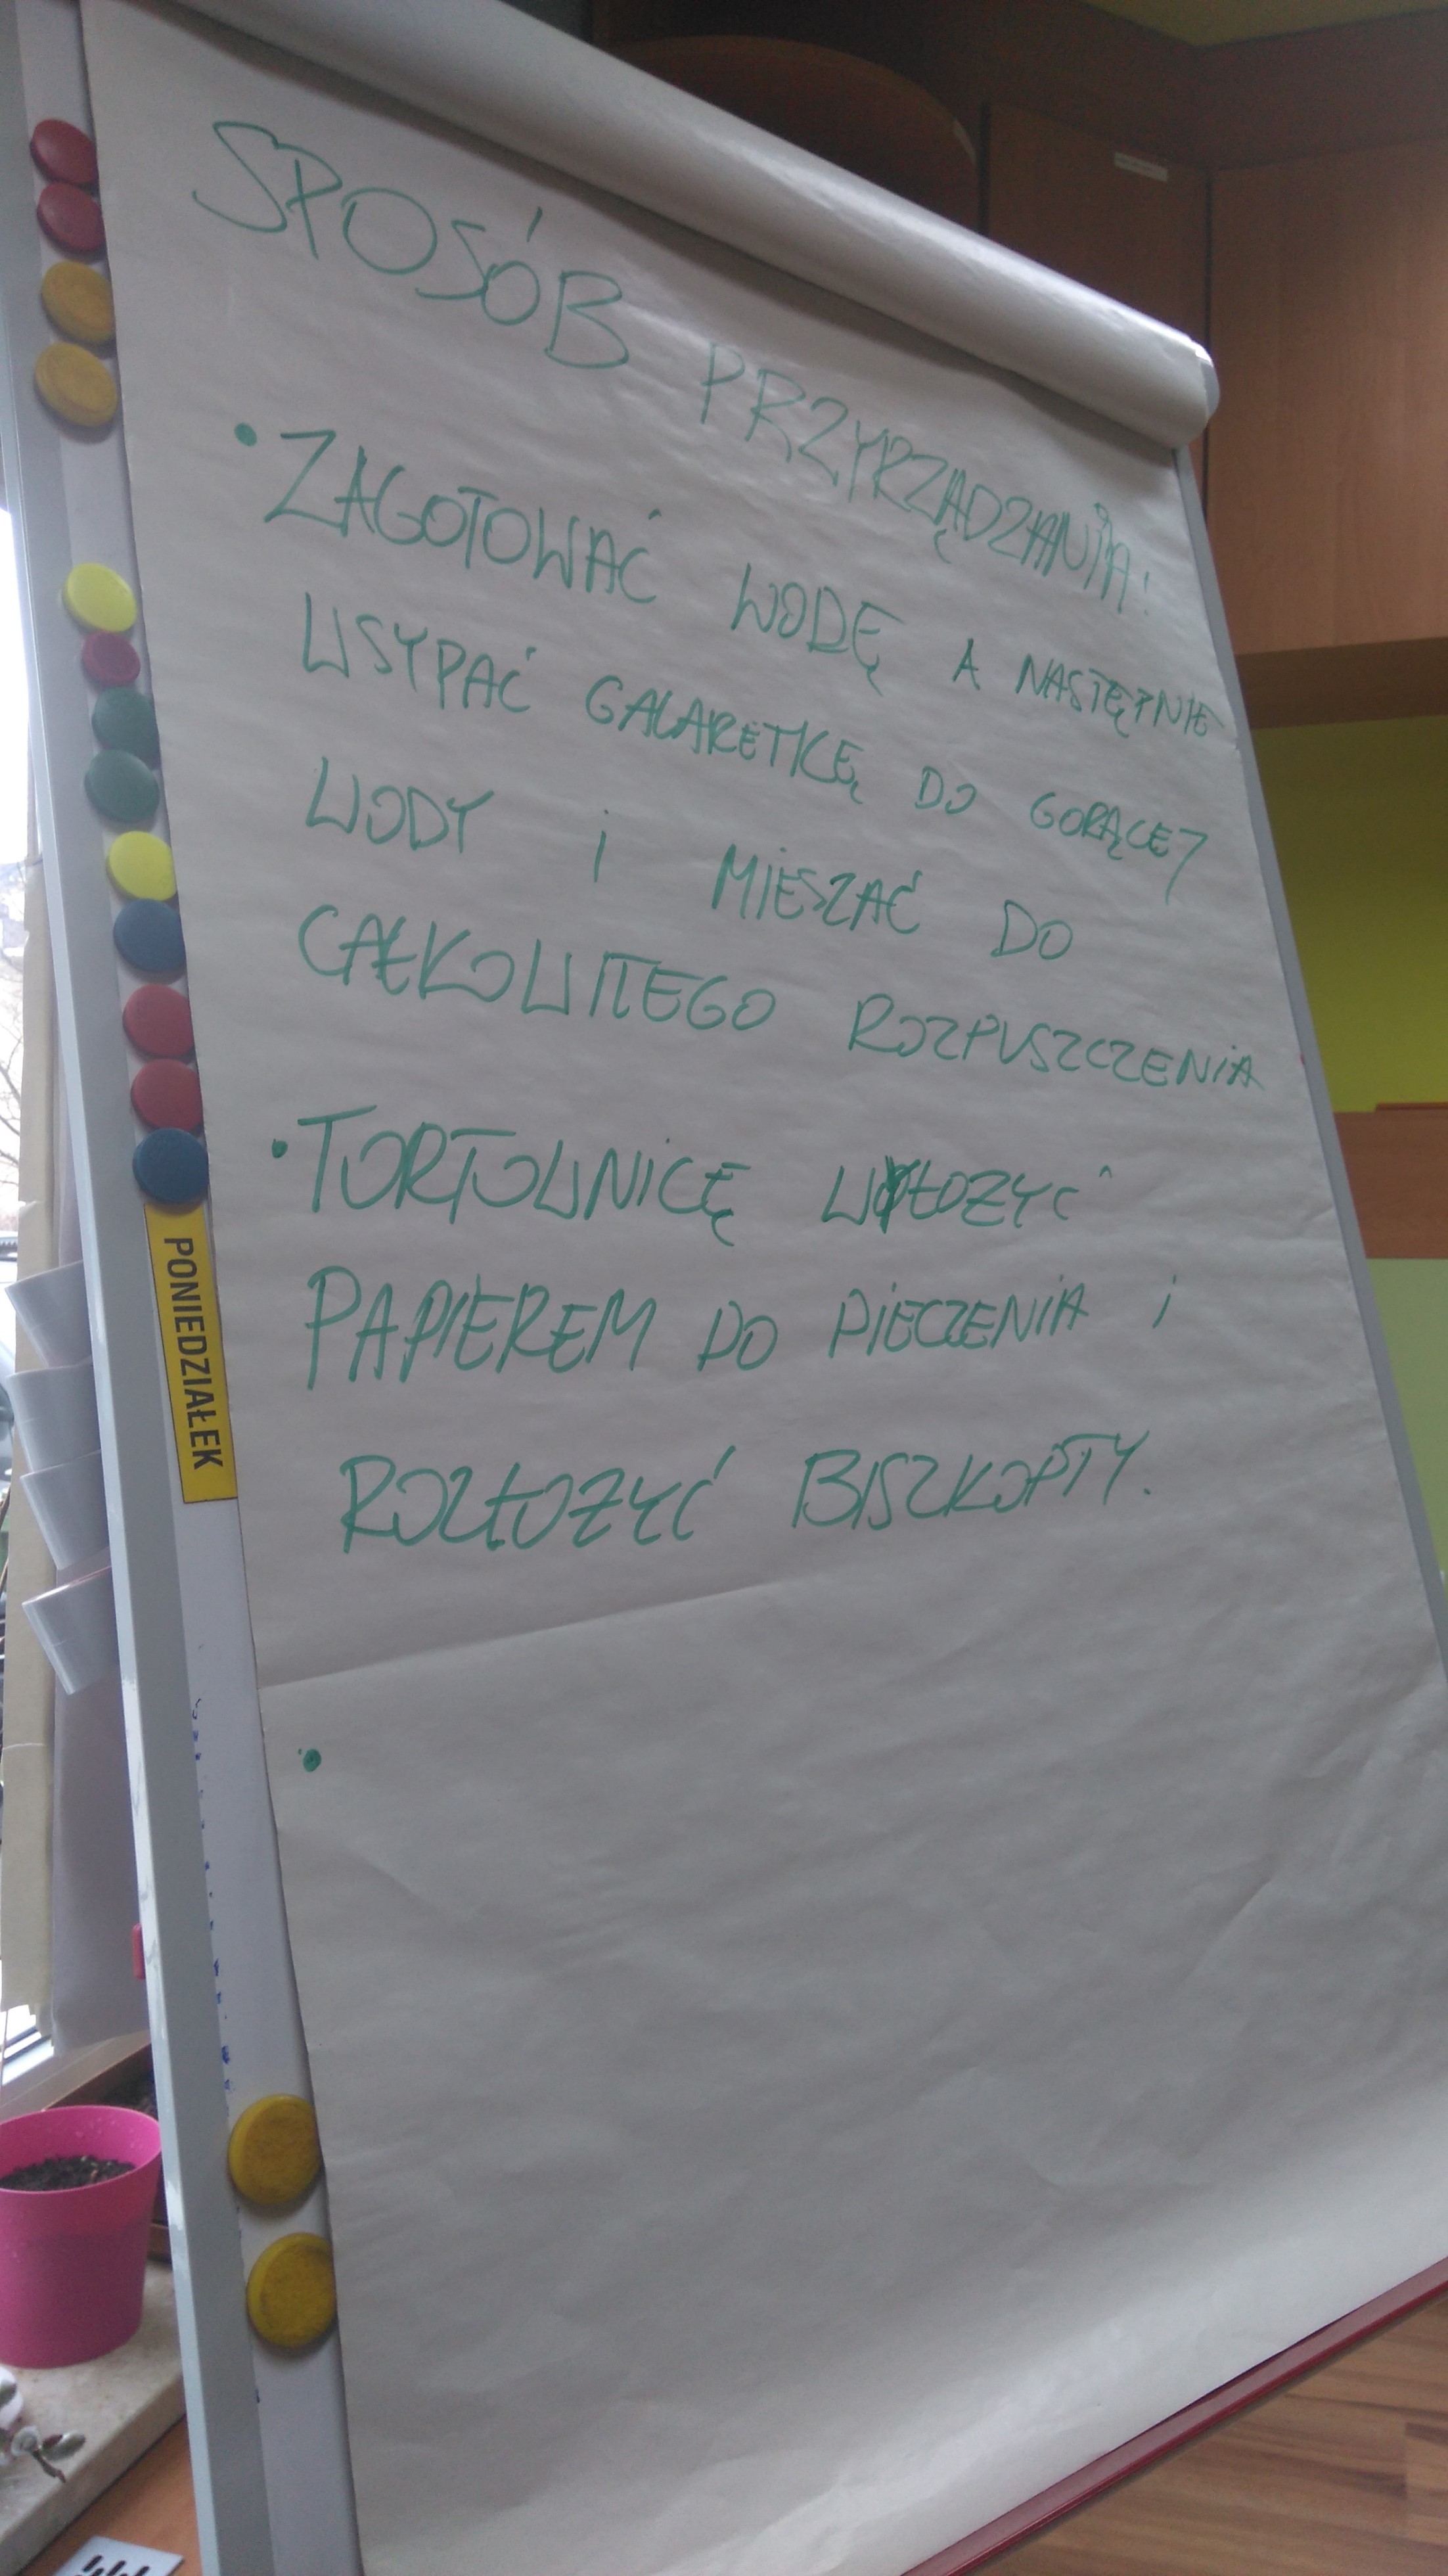 SPOSÓB PRZYRZĄDZANIA:
• ZAGOTOWAĆ WODĘ A NASTĘPNIE
WSYPAĆ GALARETKĘ DO GORĄCEJ
WODY i MIESZAĆ DO
CAŁKOWITEGO ROZPUSZCZENIA
• TORTOWNICĘ WYŁOŻYĆ
PAPIEREM DO PIECZENIA i
ROZŁOŻYĆ BISZKOPTY.
•
PONIEDZIAŁEK